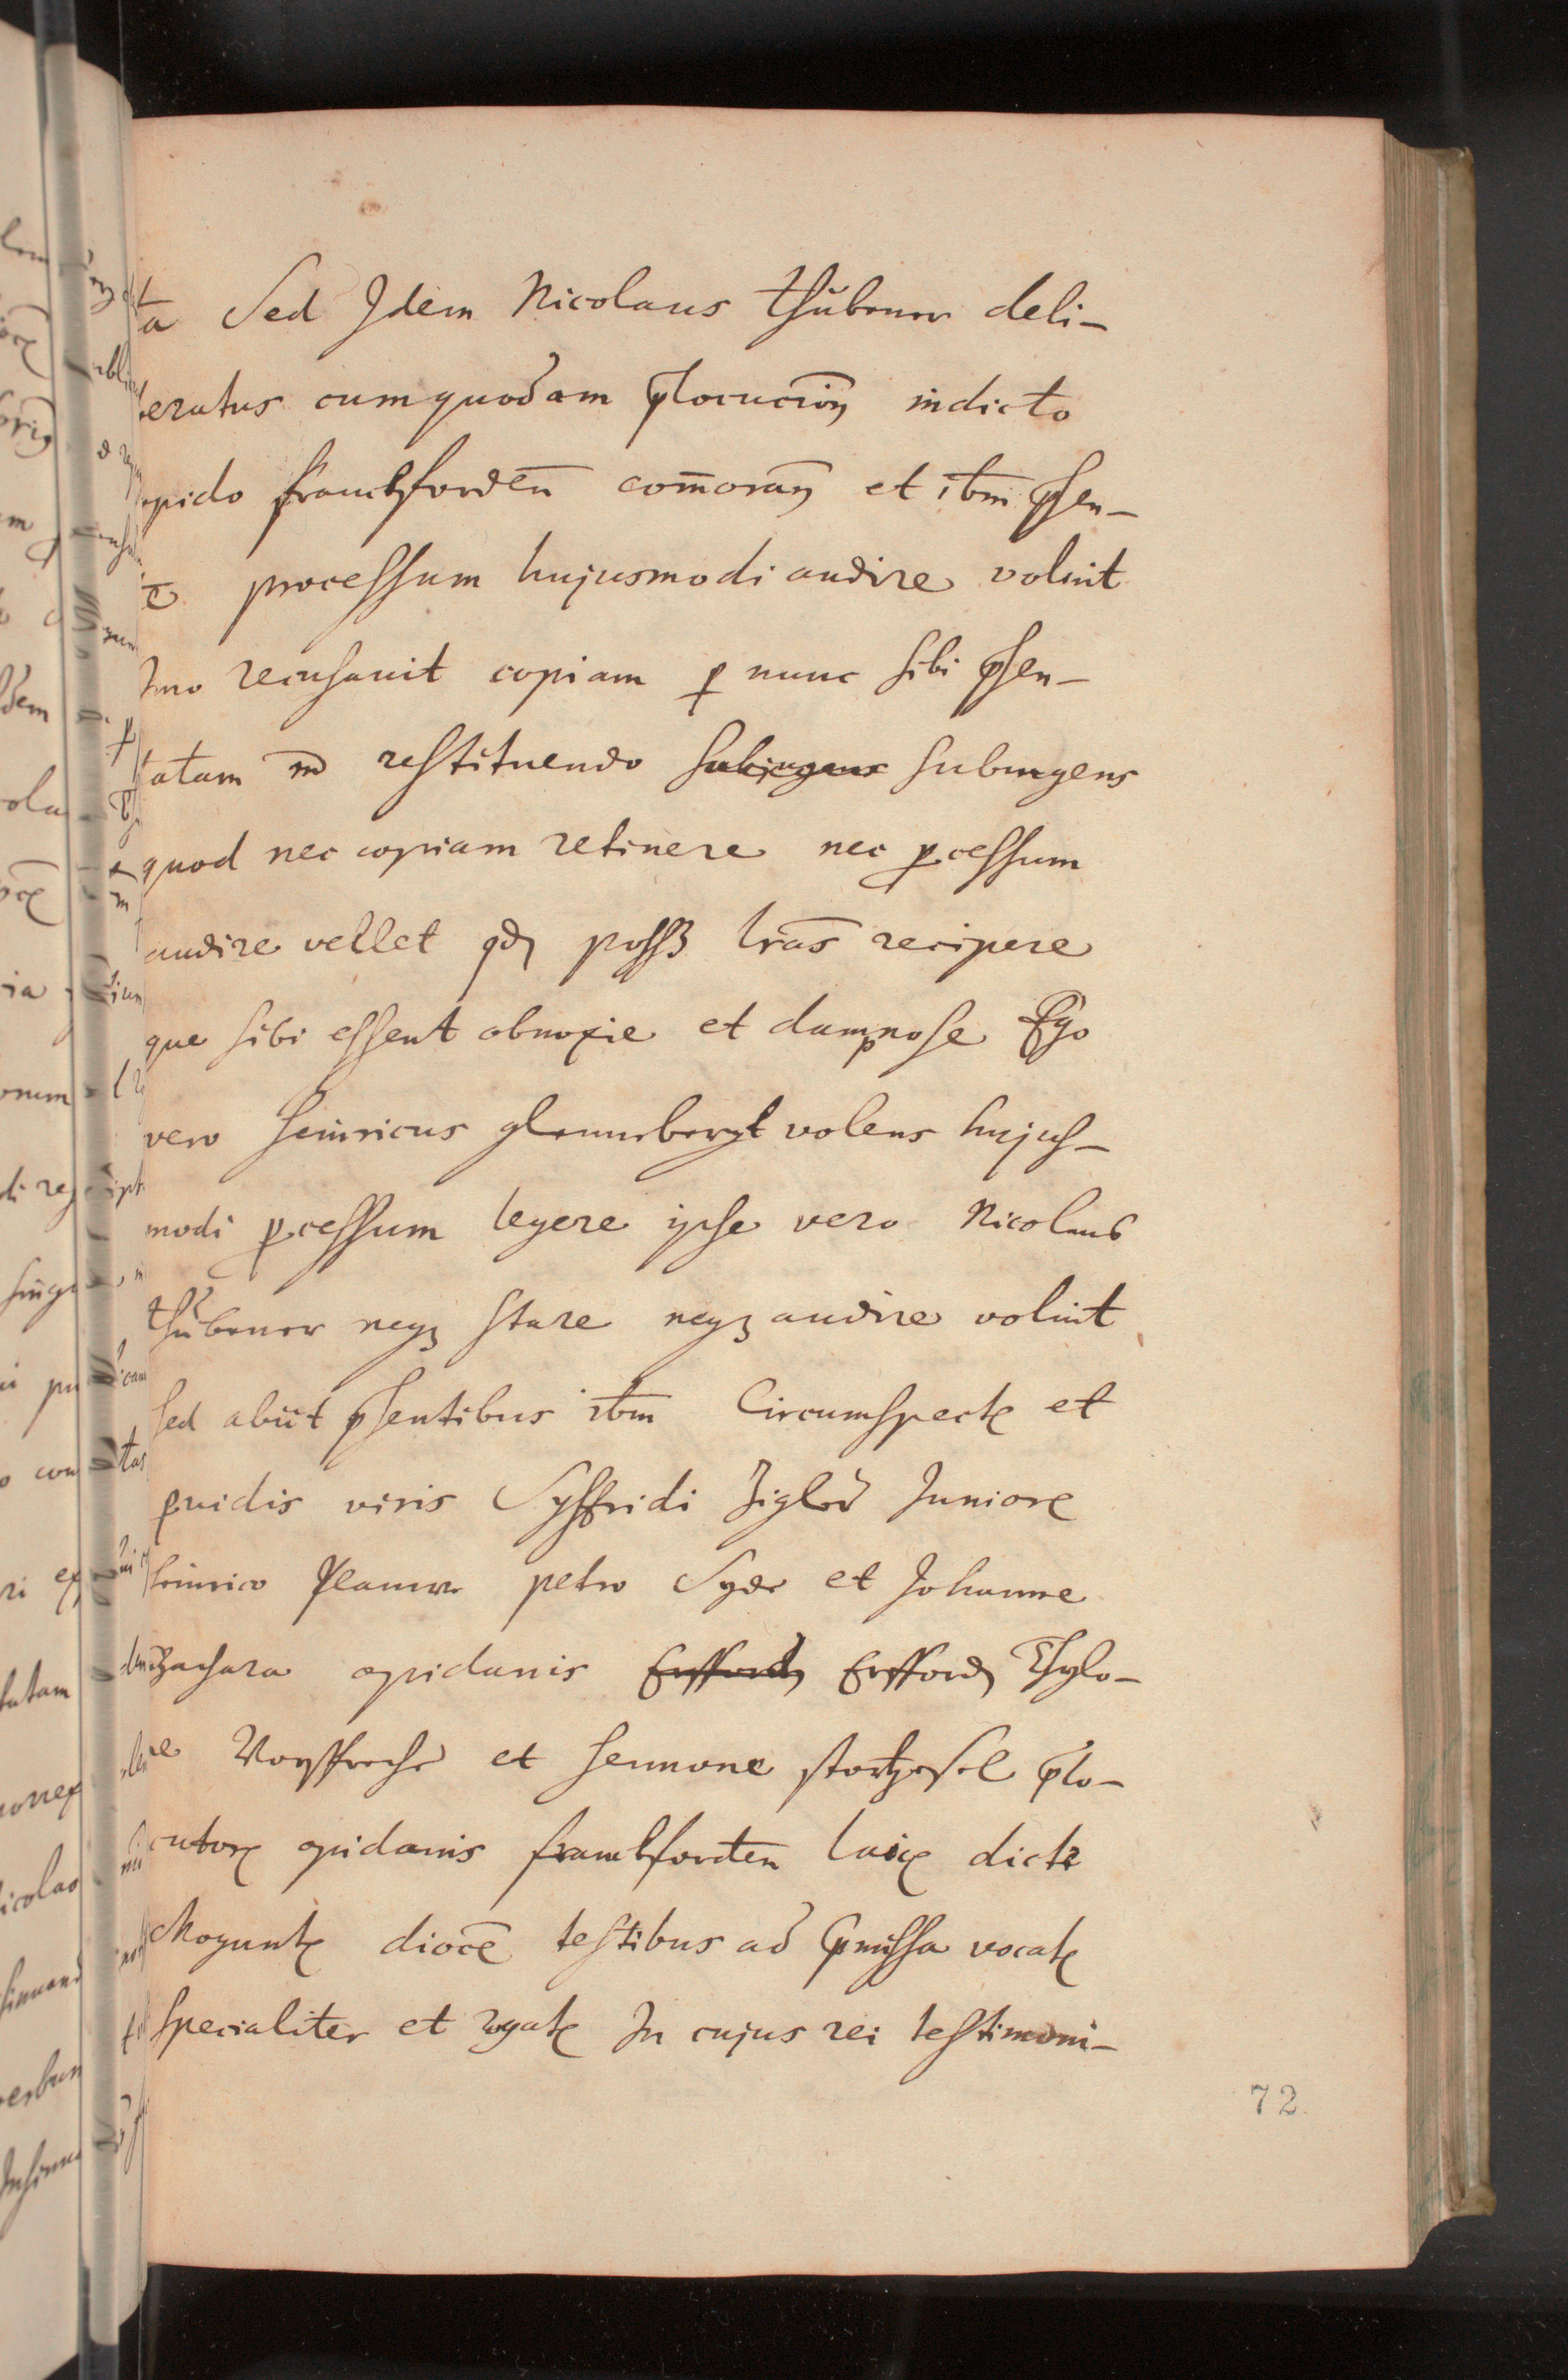 ta Sed Jdem Nicolaus thübener deli-
eratus cum quodam ꝓlocucion indicto
opido franckforden̄ com̄oran̄ et ibm p̄sen-
te processum hujusmodi audire voluit
Jmo recusauit copiam ꝓ nunc sibi p̄sen-
tatam restituendo ~~subiugens~~ subiungens
quod nec copiam retinere nec ꝓcessum
audire vellet qd poss3 lrās recipere
que sibi essent obnoxie et dampnose Ego
vero heinricus volens hujus-
modi ꝓcessum legere ipse vero Nicolaus
thübener neqꝫ stare neqꝫ audire voluit
sed abiit p̄sentibus ibm Circumspectꝭ et
ꝓuidis viris Syffridi Zigler Juniorꝭ
heinrico petro et Johanne
opidanis ~~Erffordꝭ~~ Erffordꝭ Thylo-
ne et hennone ꝓlo-
cutorꝭ opidanis franckforden laicꝭ dicte
Moguntꝭ diocē testibus ad p̄missa vocatꝭ
specialiter et rogatꝭ In cujus rei testimoni-
72